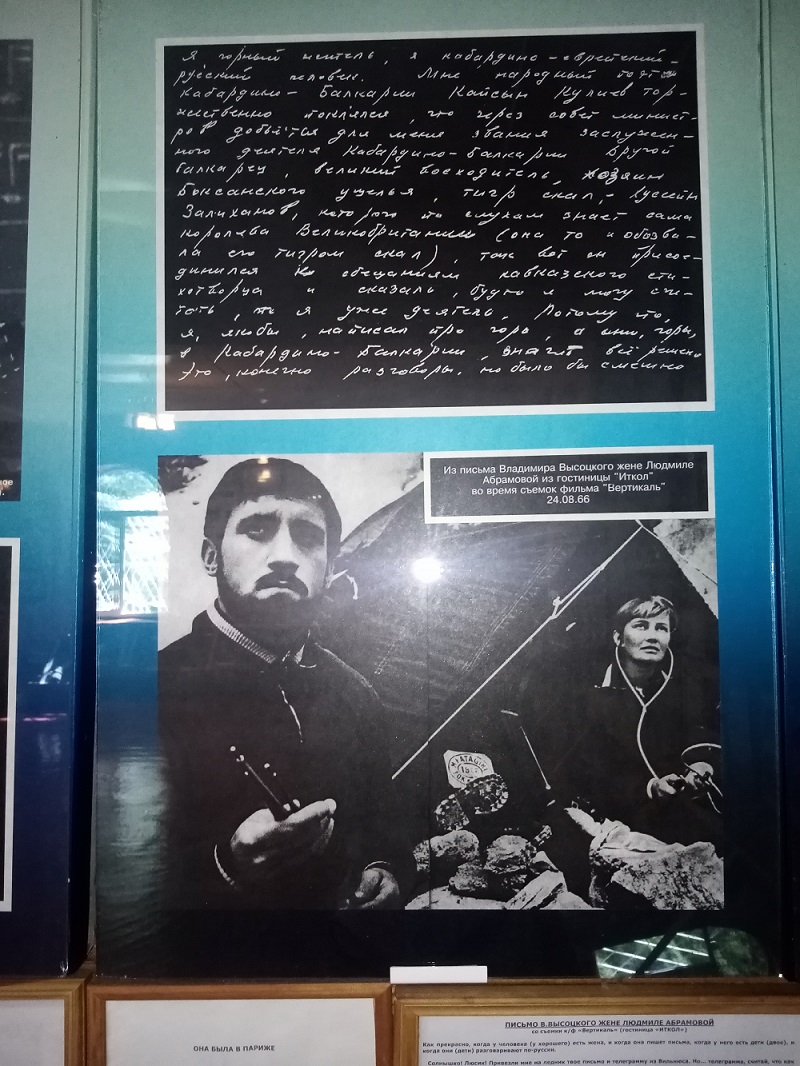 Я горный житель, я кабардино-еврейский-
русский человек. Мне народный поэт
Кабардино-Балкарии Кайсын Кулиев тор-
жественно поклялся, что через совет минист-
ров добьётся для меня звания заслужен-
ного деятеля Кабардино-Балкарии. Другой
балкарец, великий восходитель, хозяин
Боксанского ущелья, тигр скал, - Хусейн
Залиханов, которого по слухам знает сама
королева Великобритании (она то и обозва-
ла его тигром скал), тоже вот он присое-
динился к обещаниям кавказского сти-
хотворца и сказал, будто я могу счи-
тать, что я уже деятель. Потому что,
я, якобы, написал про горы, а они, горы,
в Кабардино-Балкарии, значит всё решено
Это, конечно разговоры. но было бы смешно
Из письма Владимира Высоцкого жене Людмиле
Абрамовой из гостиницы "Иткол"
во время съемок фильма "Вертикаль"
24.08.66
ОНА БЫЛА В ПАРИЖЕ
ПИСЬМО В.ВЫСОЦКОГО ЖЕНЕ ЛЮДМИЛЕ АБРАМОВОЙ
со съемки к/ф «Вертикаль» (гостиница «ИТКОЛ»)
Как прекрасно, когда у человека (у хорошего) есть жена, и когда она пишет письма, когда у него есть дети (двое), и
когда они (дети) разговаривают по-русски.
Солнышко! Люсик! Привезли мне на ледник твое письма и телеграмму из Вильнюса. Но... телеграмма, считай, что